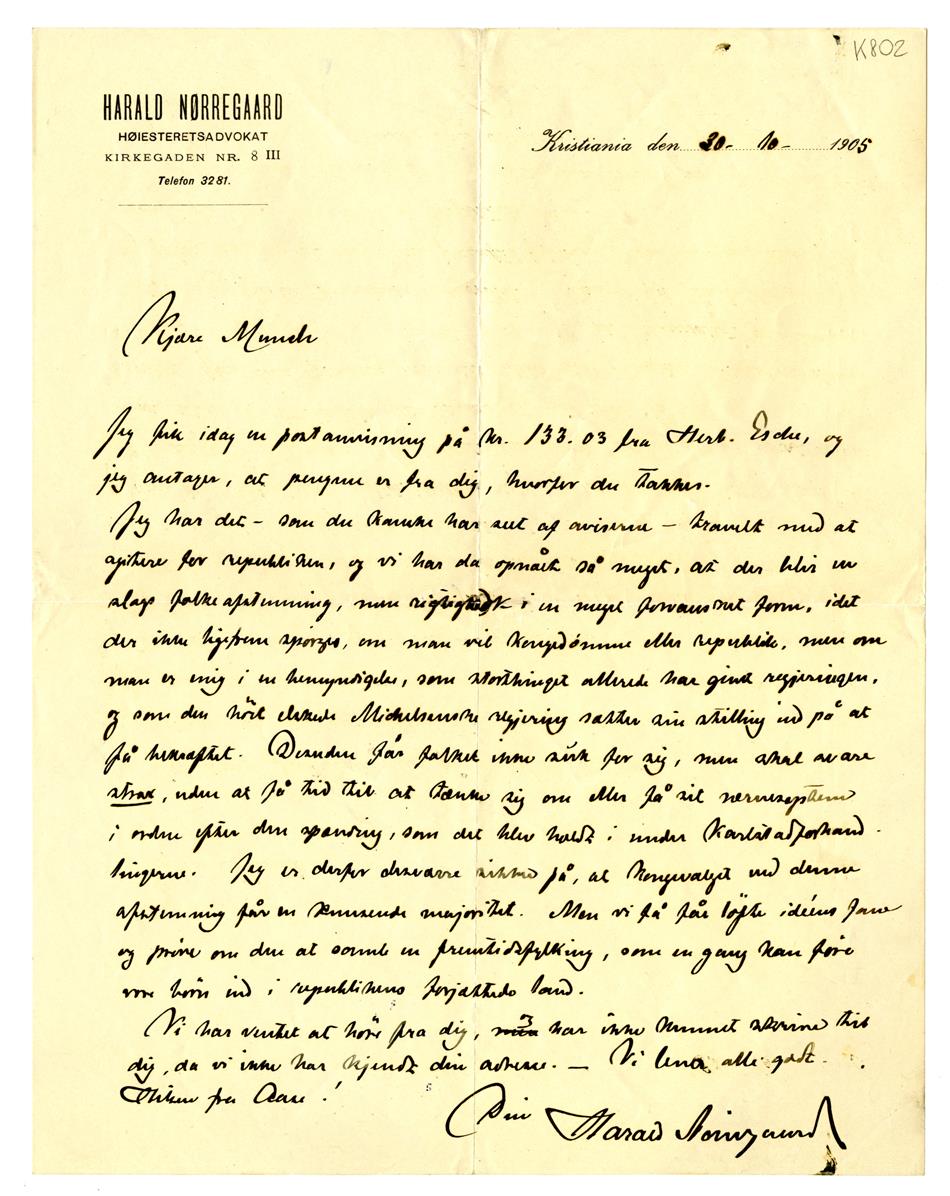 K802
HARALD NØRREGAARD
HØIESTERETSADVOKAT
KIRKEGADEN NR. 8 III
Telefon 3281.
Kristiania den 30- 10- 1905
Kjære Munch
Jeg fik idag en postanvisning på kr. 133.03 fra Herb. Esche, og
jeg antager, at pengene er fra dig, hvorfor du takkes.
Jeg har det – som du kanske har seet af aviserne – travelt med at
agitere for republiken, og vi har da opnået så meget, at der blir en
slags folkeafstemning, men rigtignok i en meget forvansket form, idet
der ikke ligefrem spörges, om man vil kongedömme eller republik, men om
man er enig i en bemyndigelse, som storthinget allerede har givet regjeringen,
og som den höit elskede Michelsenske regjering sætter sin stilling ind på at
få bekræftet. Desuden får folket ikke söke for sig, men skal svare
strax, uden at få tid til at tænke sig om eller få sit nervesystem
i orden efter den spænding, som det blev holdt i under Karlstadforhand-
lingerne. Jeg er derfor desværre sikker på, at kongevalget ved denne
afstemning får en knusende majoritet. Men vi få får löfte idéens fane
og pröve om den at samle en fremtidsfylking, som en gang kan före
vore börn ind i republikens forjættede land.
Vi har ventet at höre fra dig, men har ikke kunnet skrive til
dig, da vi ikke har kjendt din adresse. – Vi lever alle godt.
Hilsen fra Aase!
Din Harald Nörregaard